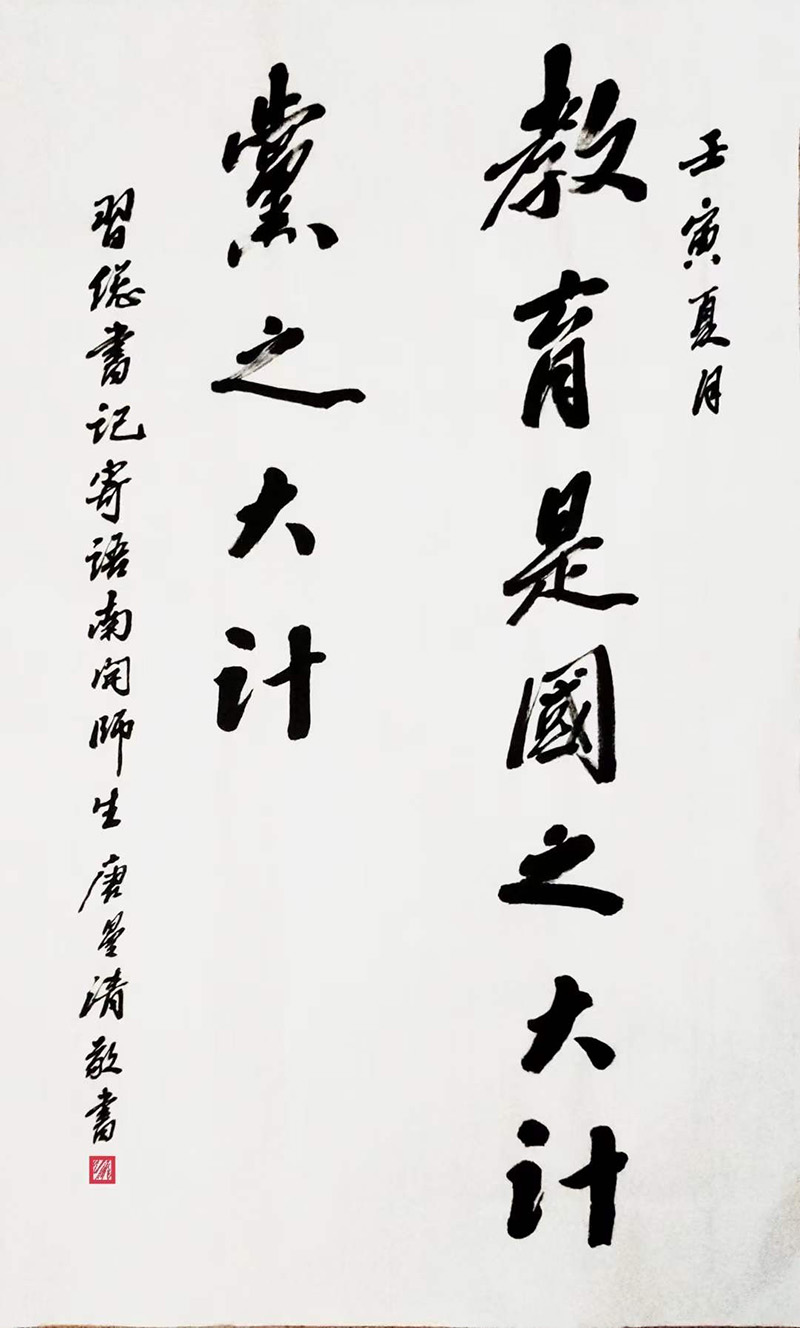 壬寅夏月
教育是國之大计
黨之大计
習総書记寄语南开師生 唐星清敬書